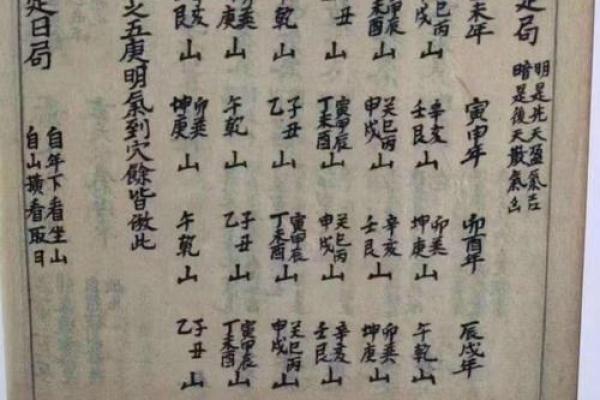 定局
明是先天盈氣吉
暗是後天散氣凶
未年 寅申年 卯酉年 辰戌年
巳丙戌山 辛亥壬艮山 卯巽坤庚山 午乾山
甲辰未酉山 癸巳丙申戌山 辛亥壬艮山 卯巽坤庚山
丑山 寅甲辰丁未酉山 癸巳丙申戌山 辛亥壬艮山
午乾山 子丑乙山 寅甲辰丁未酉山 癸巳丙申戌山
巽庚山 午乾山 子丑乙山 寅甲辰丁未酉山
亥艮山 卯巽坤庚山 午乾山 子丑乙山
之五庚明氣到穴餘皆倣此
定日局
自年下看坐山
自山橫看取日